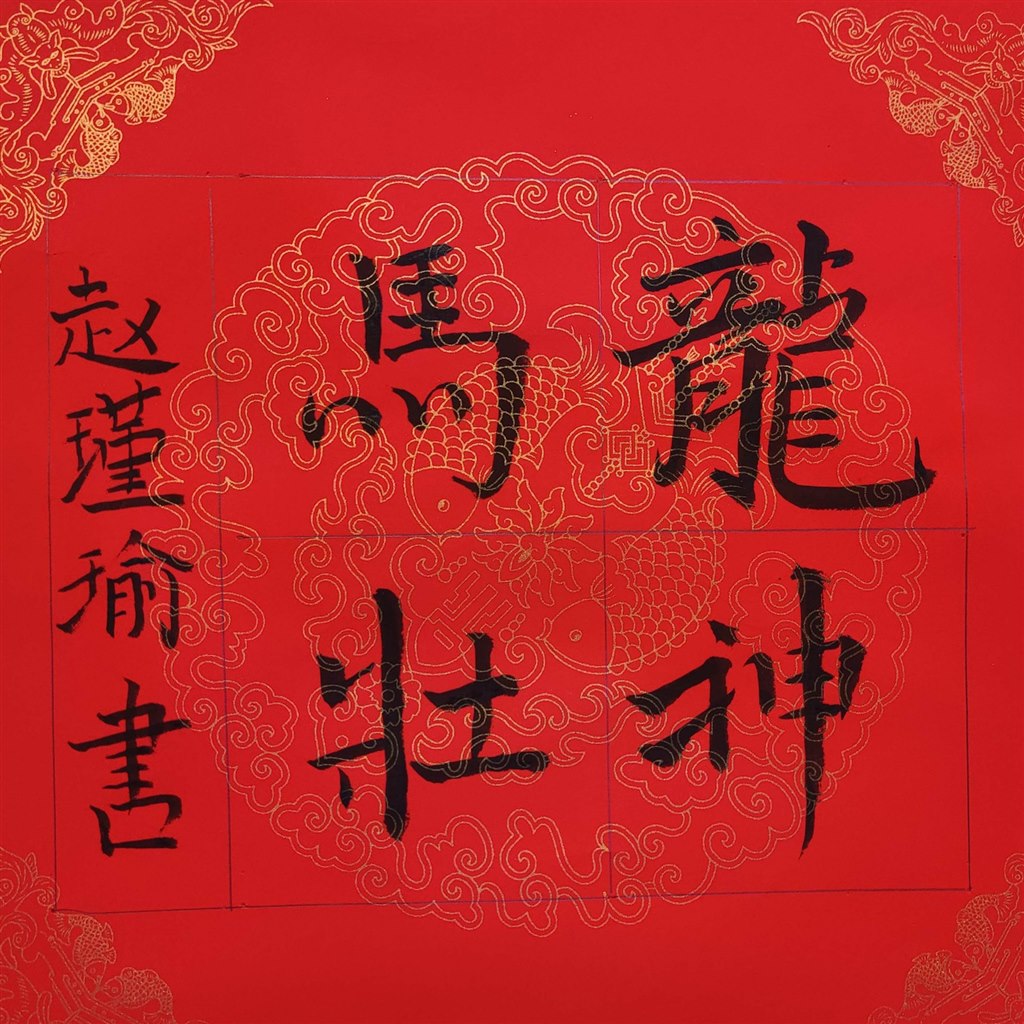 龍神
馬壯
赵瑾瑜書